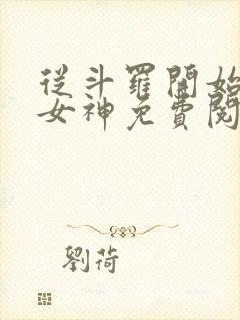 從斗羅開始
女神免費閱
劉荷